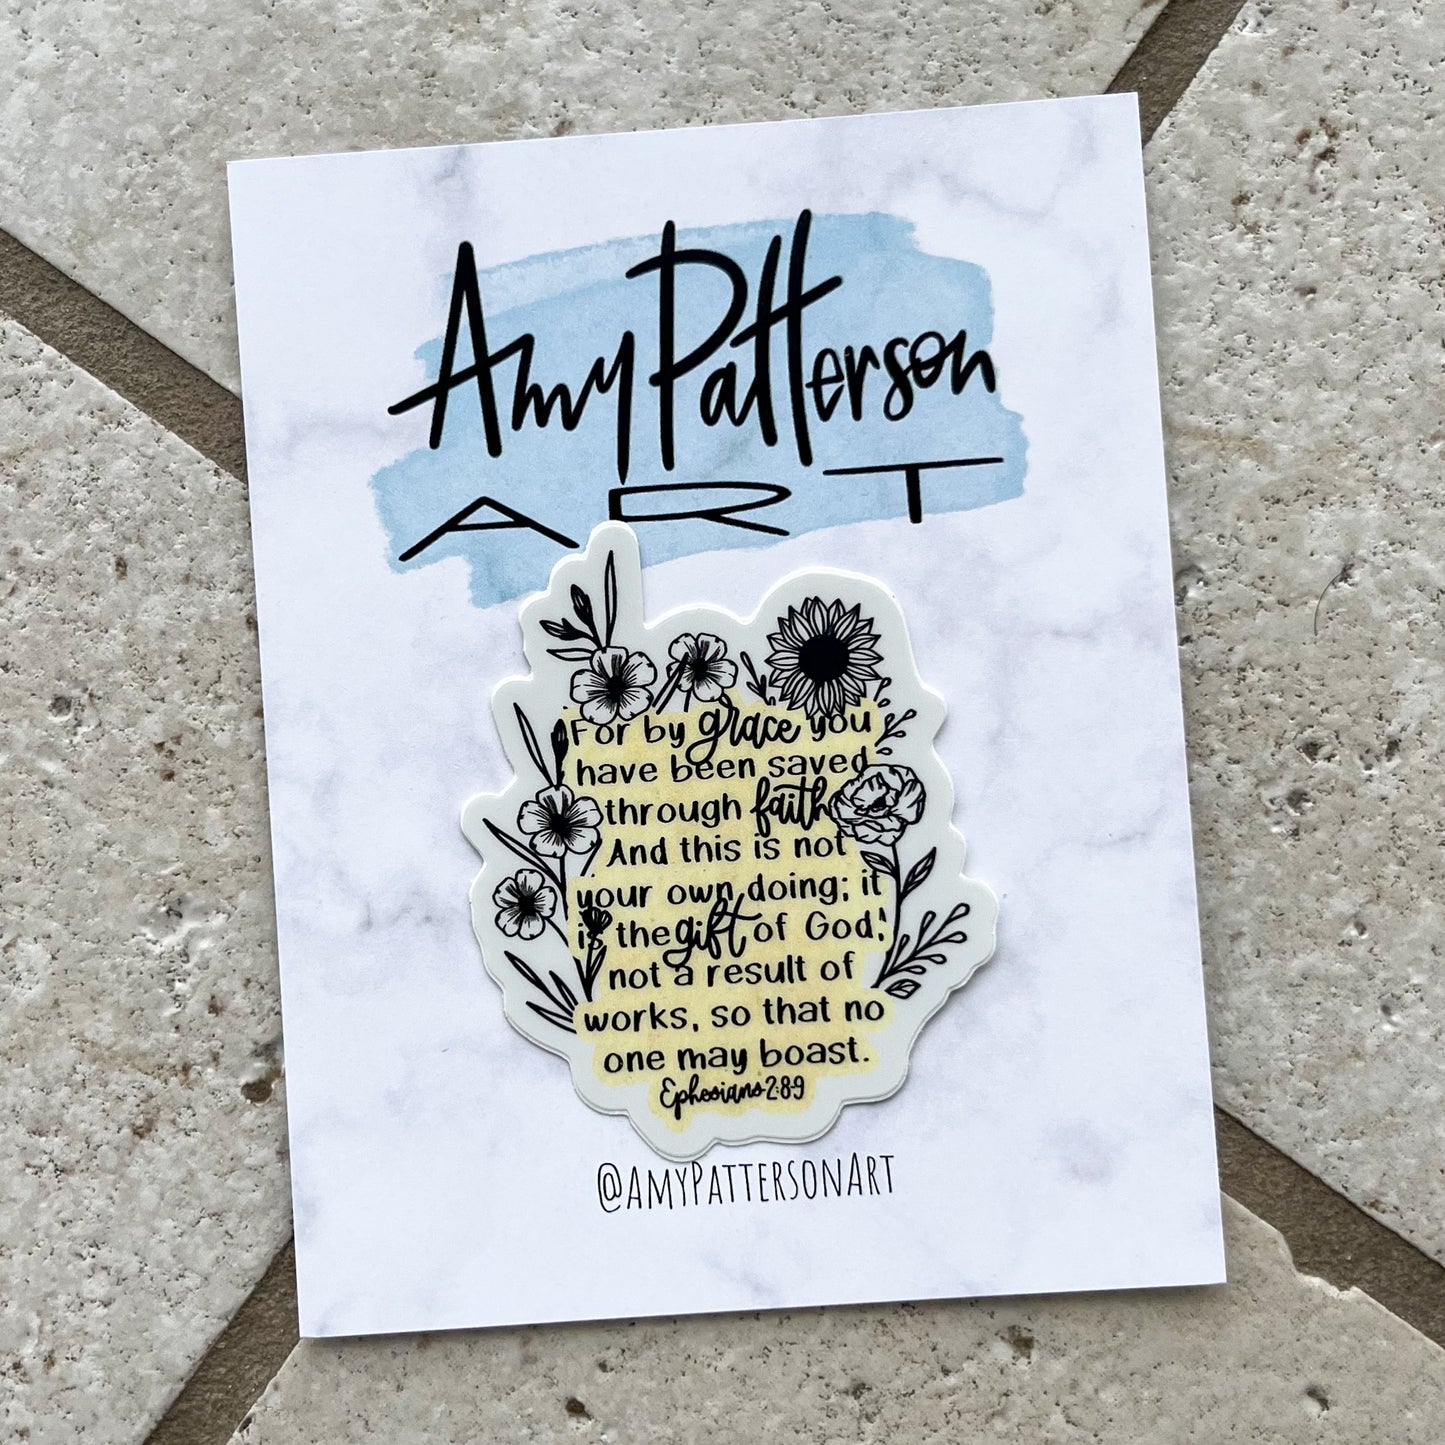 Amy Patterson
ART
For by grace you
have been saved
through faith
And this is not
your own doing; it
is the gift of God,
not a result of
works, so that no
one may boast.
Ephesians 2:8-9
@AMYPATTERSONART